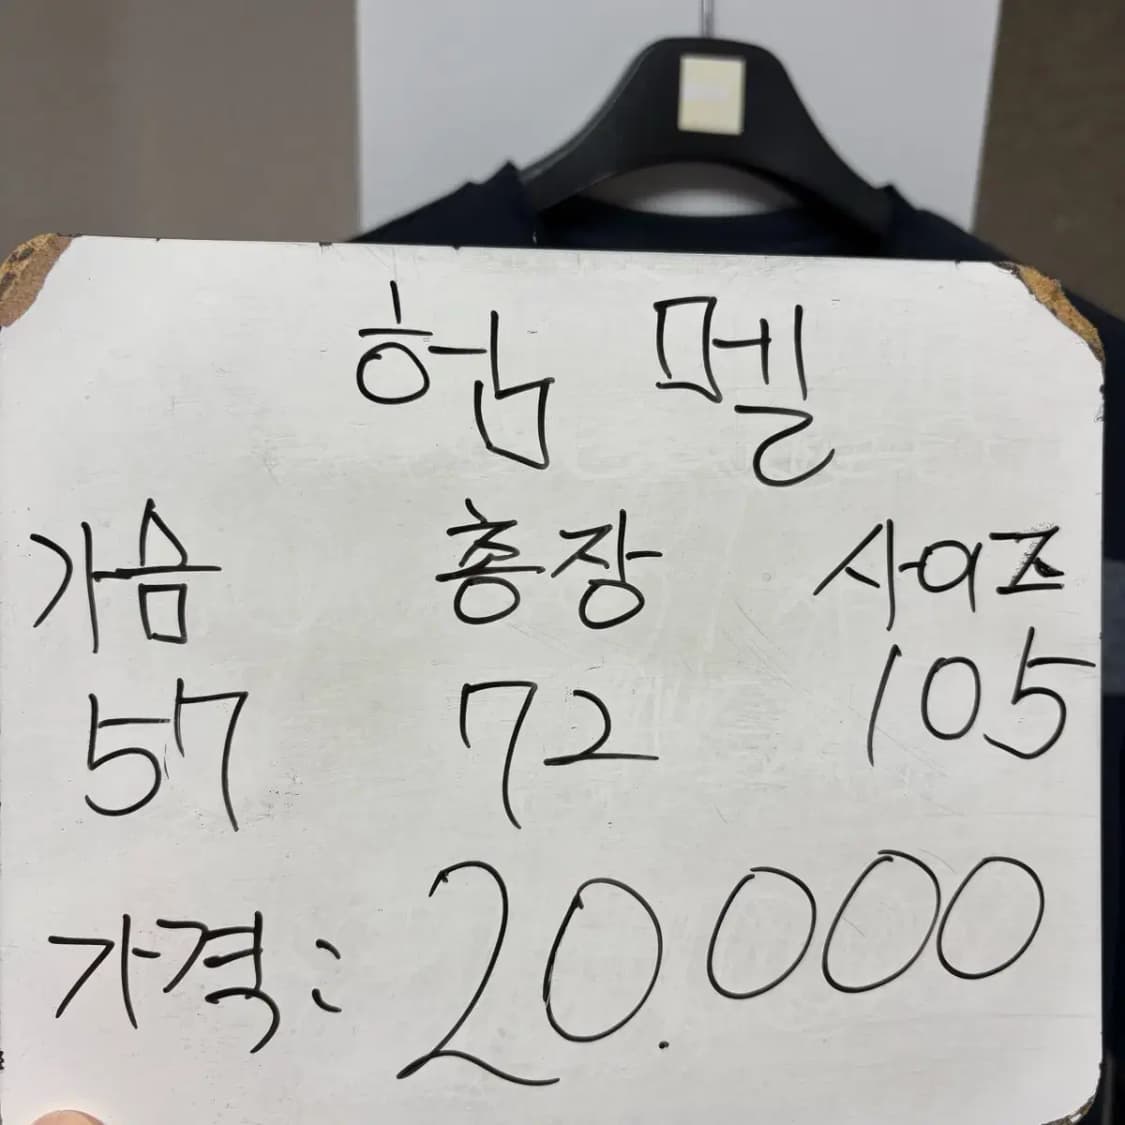 험 멜
가슴 총장 사이즈
57 72 105
가격: 20.000